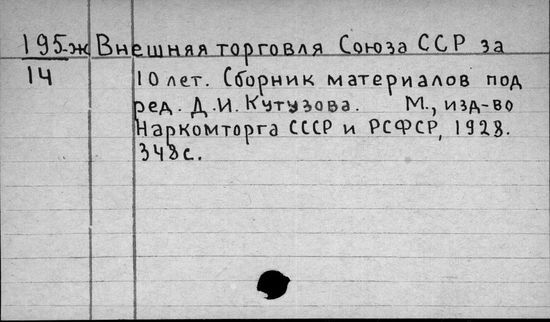 195-ж Внешняя торговля Союза ССР за
14 10 лет. Сборник материалов под
ред. Д.И. Кутузова. М., изд-во
Наркомторга СССР и РСФСР, 1928.
348с.